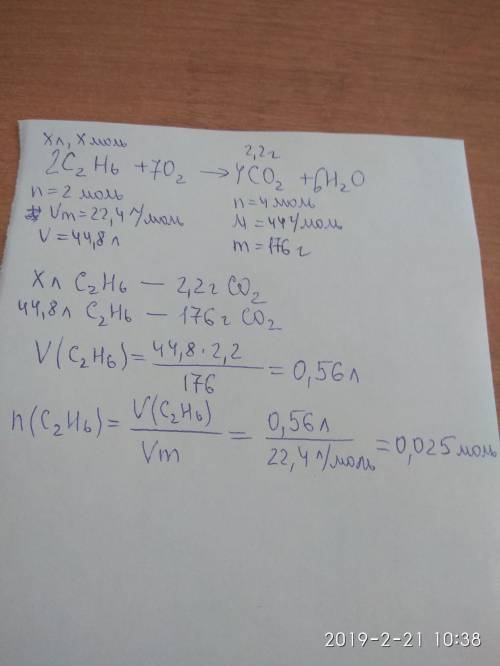 Xл, Xмоль
2,2г
2C₂H₆ + 7O₂ → 4CO₂ + 6H₂O
n = 2 моль
n = 4 моль
Vm = 22,4 л/моль
M = 44 г/моль
V = 44,8 л
m = 176 г
Xл C₂H₆ — 2,2г CO₂
44,8л C₂H₆ — 176г CO₂
V(C₂H₆) = 44,8 · 2,2 / 176 = 0,56л
n(C₂H₆) = V(C₂H₆) / Vm = 0,56л / 22,4 л/моль = 0,025 моль
2019-2-21 10:38